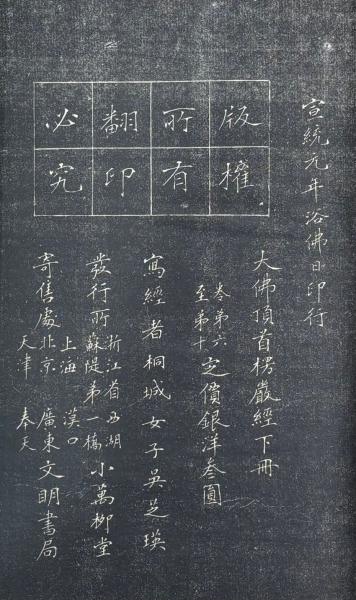 宣統元年浴佛日印行
版權
所有
翻印
必究
大佛頂首楞嚴經下冊
卷第六
至第十
定價銀洋叁圓
寫經者桐城女子吳芝瑛
發行所
浙江省西湖
蘇隄第一橋
小萬柳堂
寄售處
上海 漢口
北京 廣東
天津 奉天
文明書局